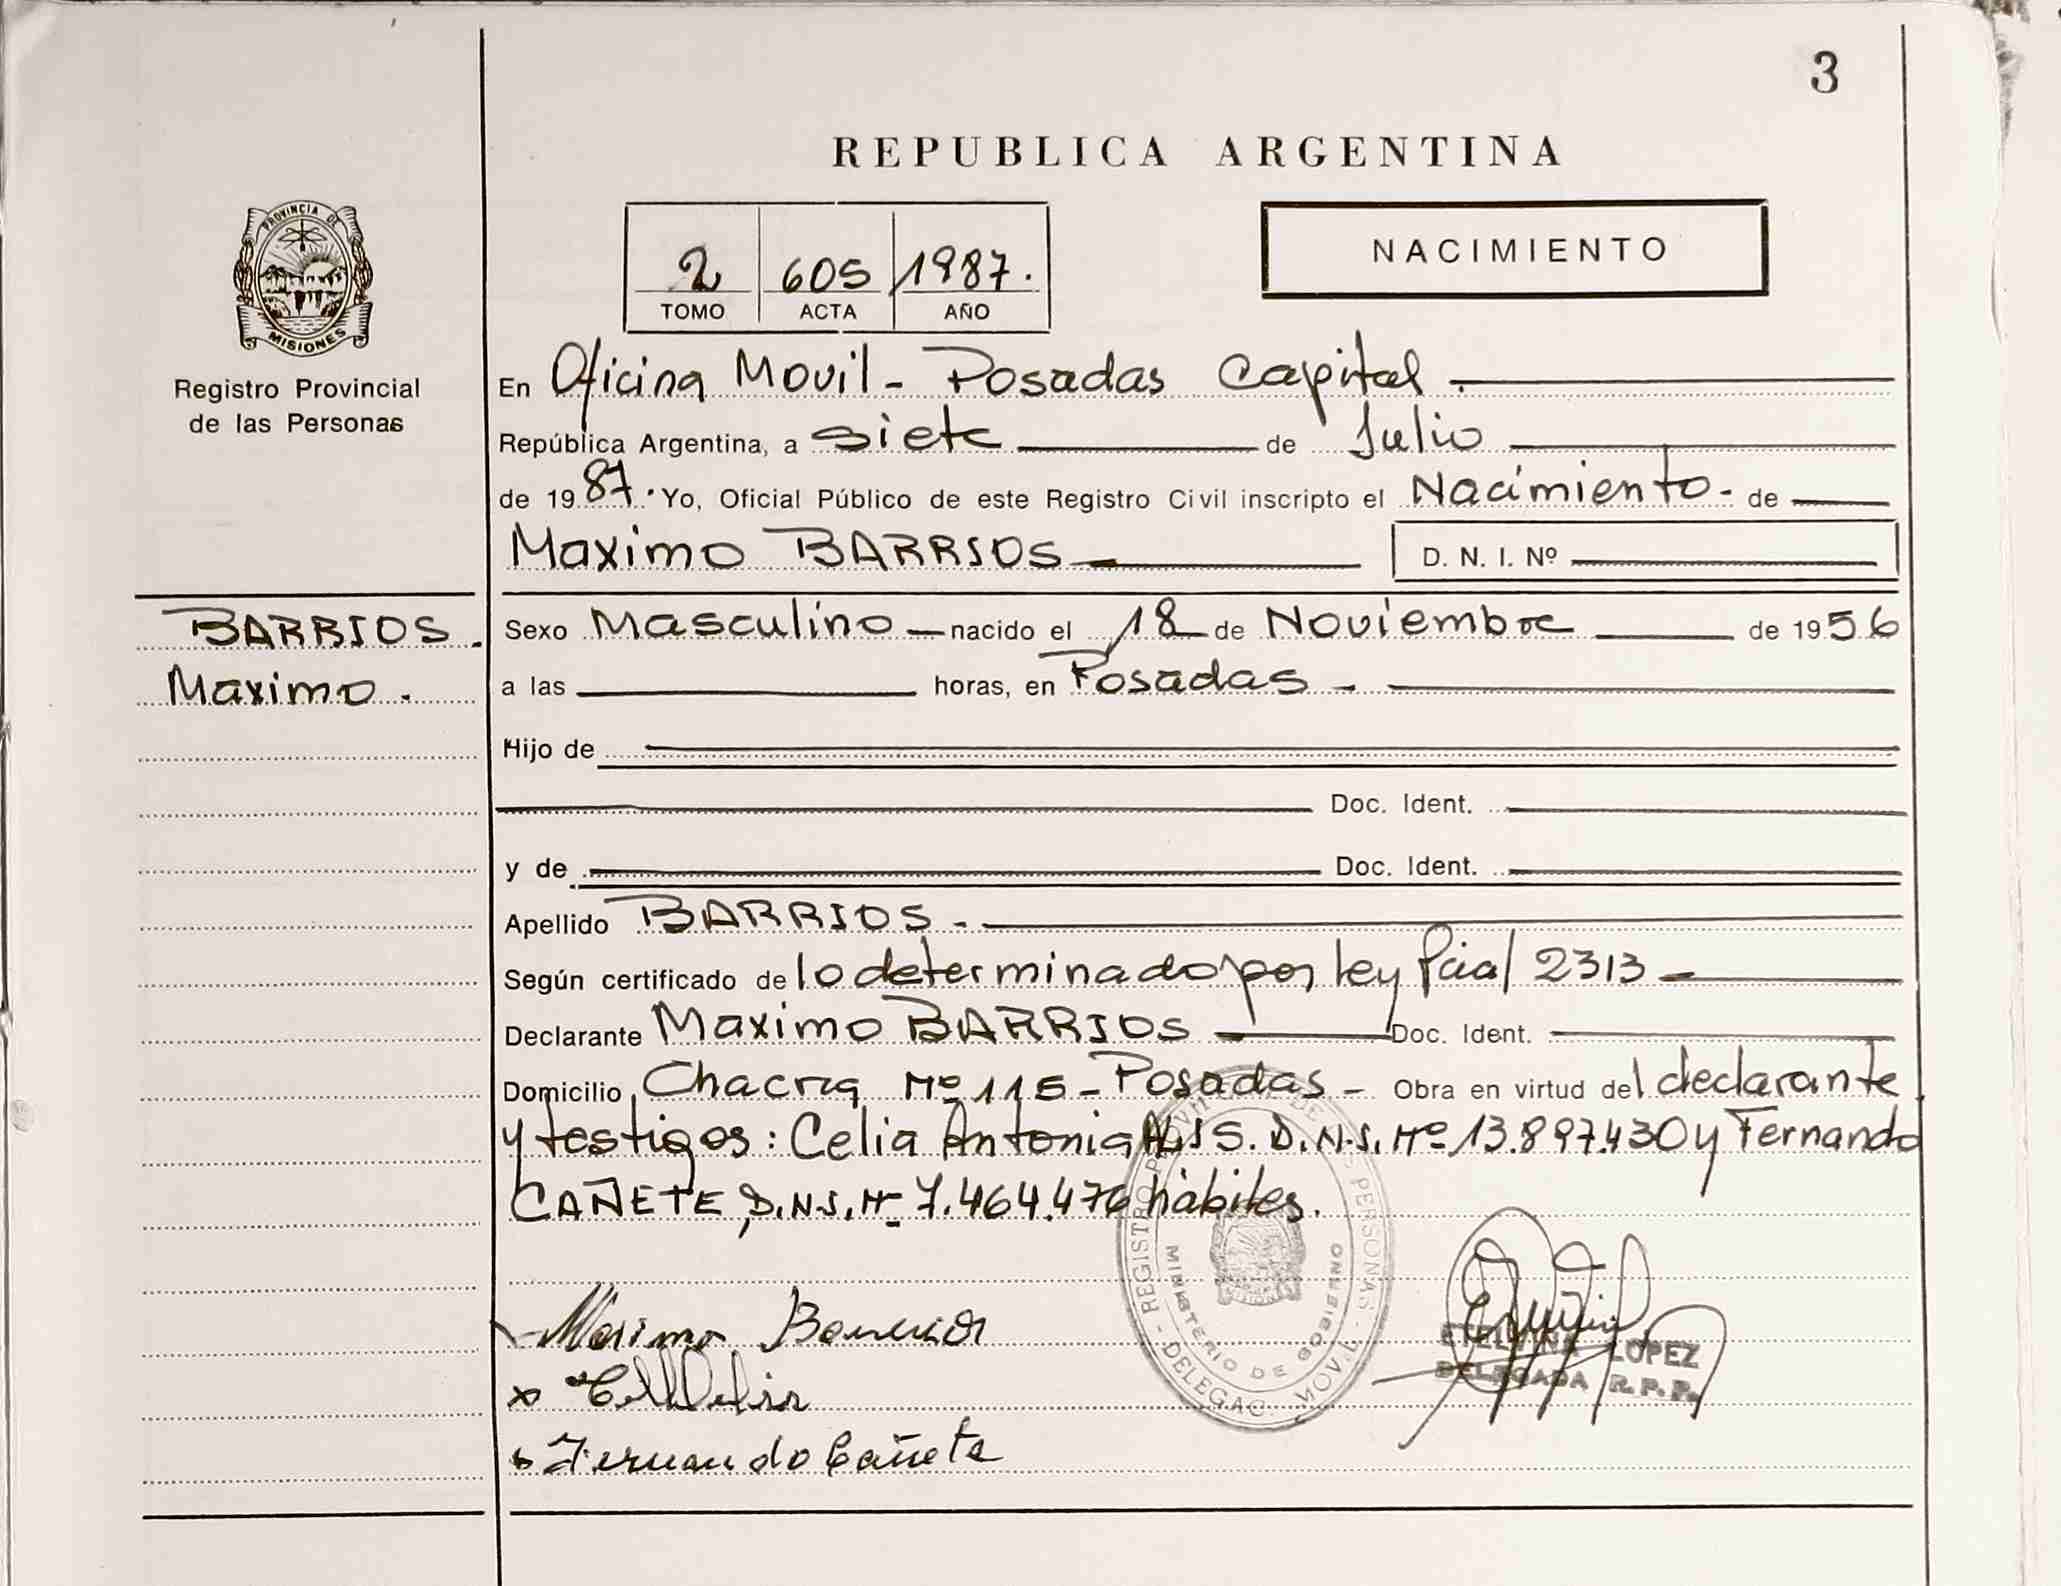 3
REPUBLICA ARGENTINA
PROVINCIA DE
MISIONES
Registro Provincial
de las Personas
2 605 1987.
TOMO ACTA AÑO
NACIMIENTO
En Oficina Movil - Posadas Capital.
República Argentina, a siete de Julio
de 1987. Yo, Oficial Público de este Registro Civil inscripto el Nacimiento - de
Maximo BARRIOS D. N. I. Nº
BARRIOS.
Maximo.
Sexo Masculino nacido el 18 de Noviembre de 1956
a las horas, en Posadas -
Hijo de
Doc. Ident.
y de Doc. Ident.
Apellido BARRIOS -
Según certificado de lo determinado por ley Pcial 2313
Declarante Maximo BARRIOS Doc. Ident.
Domicilio Chacra Nº 115 - Posadas - Obra en virtud del declarante
y testigos: Celia Antonia D.N.I. Nº 13.897.430 y Fernando
CAÑETE, D.N.I. Nº 7.464.476 hábiles.
REGISTRO DE PERSONAS - DELEGAC. MOVIL
MINISTERIO DE GOBIERNO
Maximo
Fernando Cañete
ETELVINA LOPEZ
DELEGADA R. P. P.